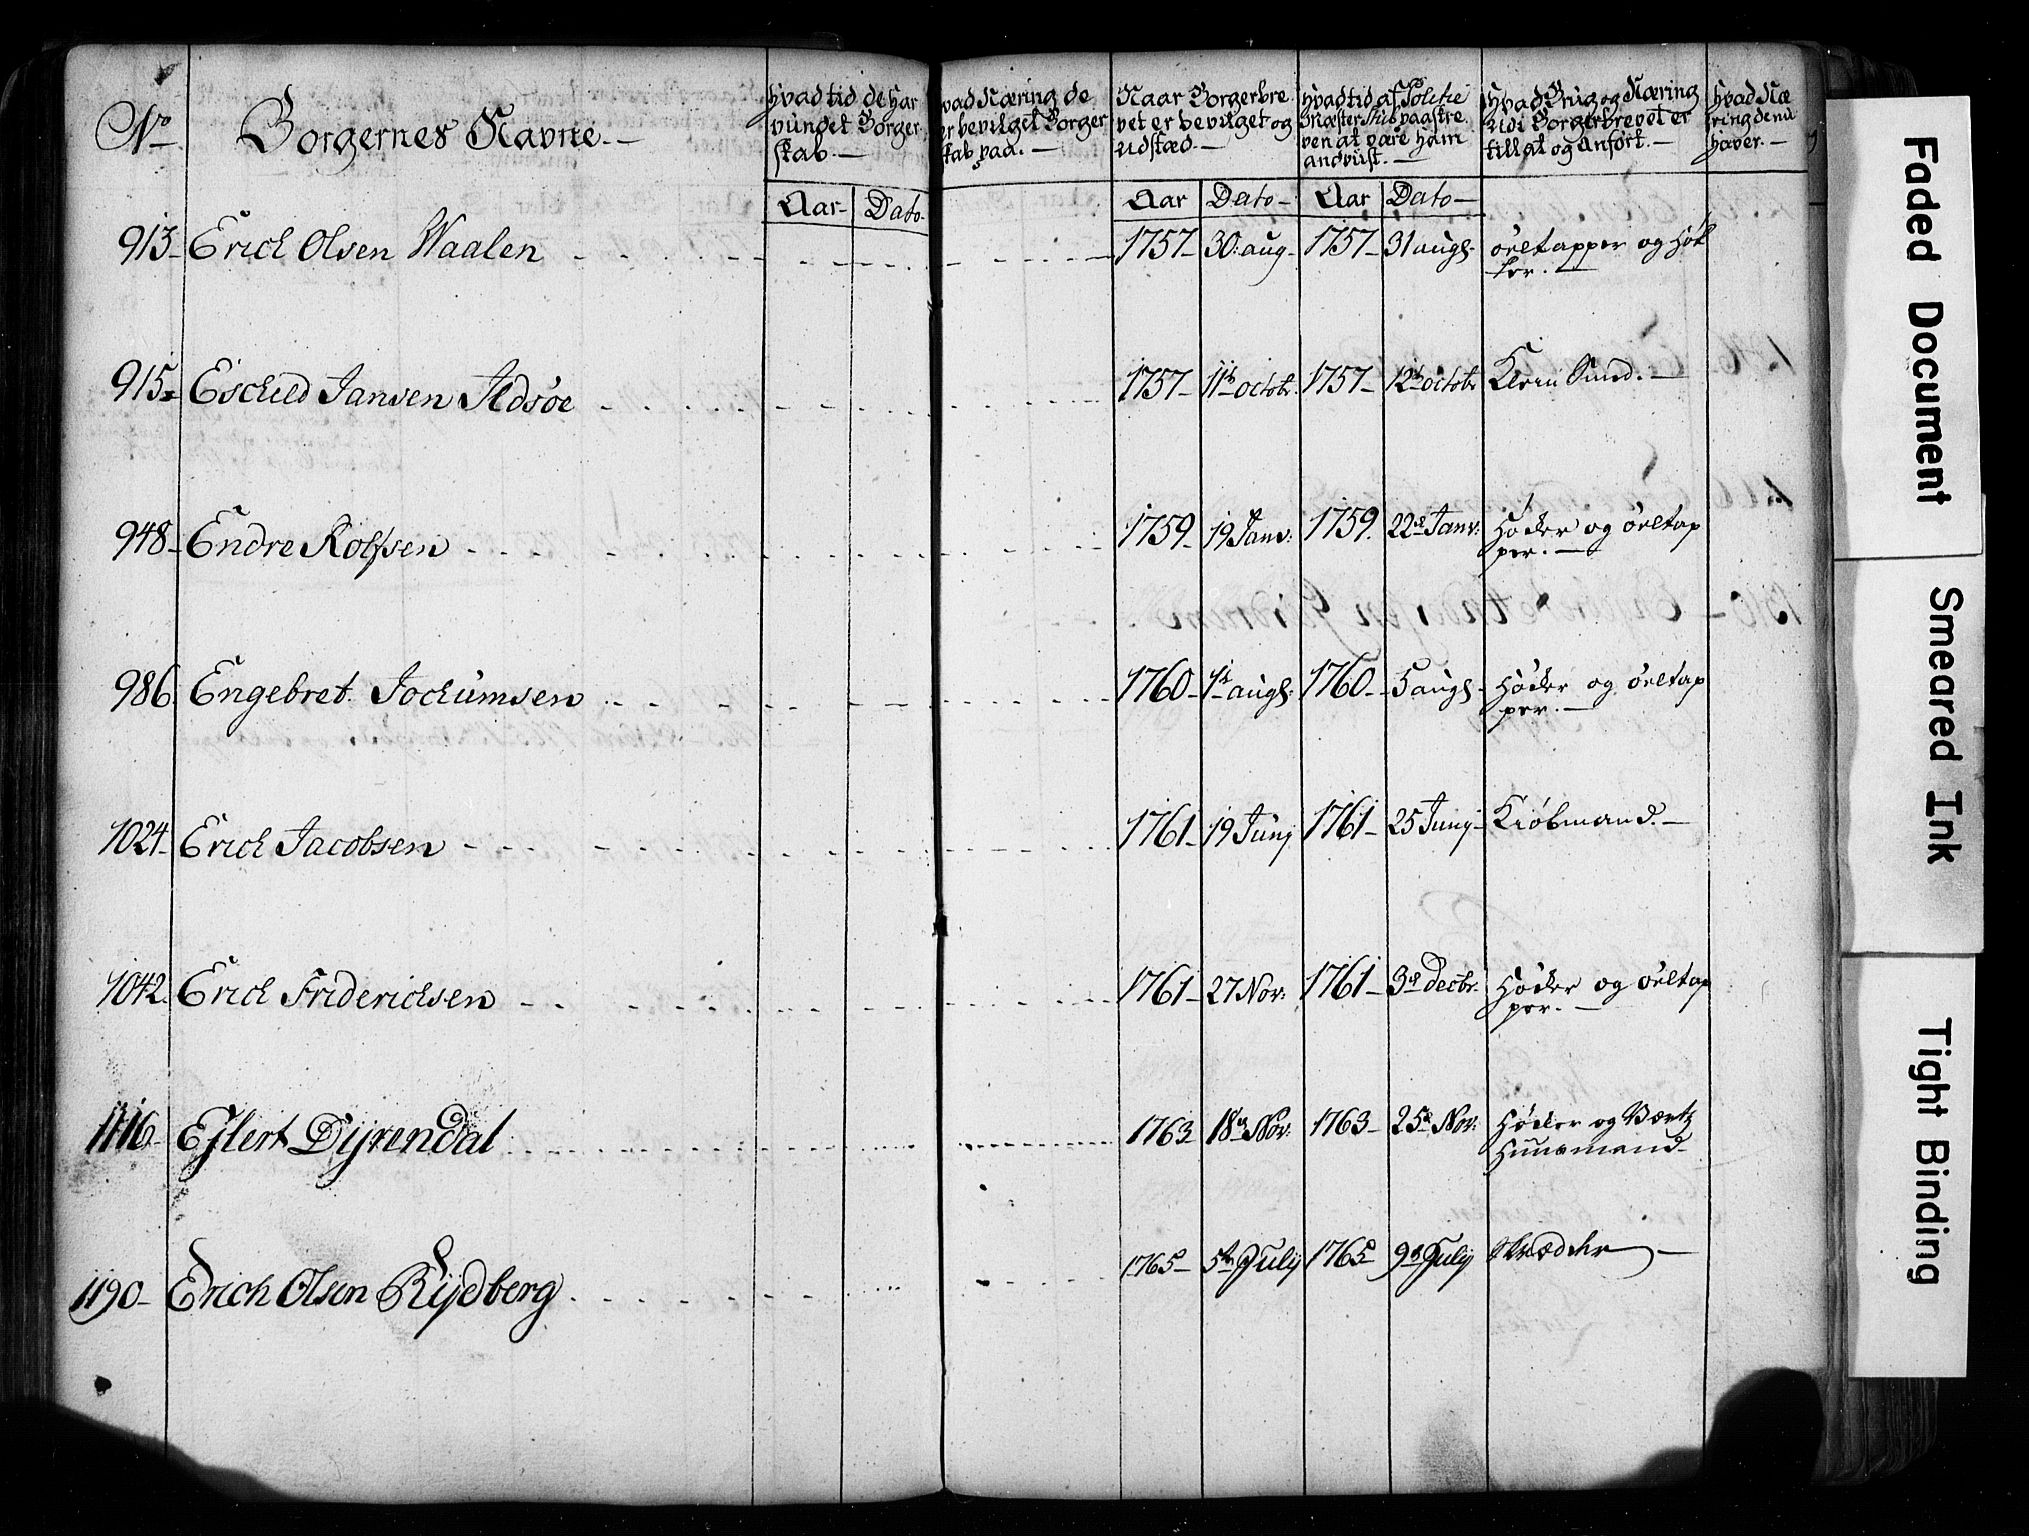 No
Borgernes Navne.
Hvad tid de har
vundet Borger
skab.
Aar
Dato
hvad Næring de
er bevilget Borger
skab paa.
Naar Borgerbre
vet er bevilget og
udstæd.
Aar
Dato
Hvad tid af Politie
mæster
ven at være ham
andvist.
Aar
Dato
Hvad Brug og Næring
udi Borgerbrevet er
tillat og anfört.
Hvad Næ
ring de nu
haver.
913 Erich Olsen Waalen 1757 30. aug 1757 31 augs. ölltapper og Hök
ker.
915 Eschild Jansen Ildsöe 1757 11te octobr. 1757 12te octobr Klein Smed.
948 Endre Rolfsen 1759 19 Janv: 1759. 22de Janv: Höcker og ölltap
per.
986 Engebret Jochumsen 1760 1te augs: 1760 5 augs Höcker og ölltap
per.
1024 Erich Jacobsen 1761 19 Junj 1761 25 Junj Kiöbmand.
1042 Erich Friderichsen 1761 27 Nov: 1761 3de Decbr. Höcker og ölltap
per.
1116 Ejlert Dyrendal 1763 18de Nov: 1763 25de Nov: Höcker og Værtz
Huusmand
1190 Erich Olsen Rydberg 1765 5te July 1765 9de July Skrædder
Faded Document
Smeared Ink
Tight Binding